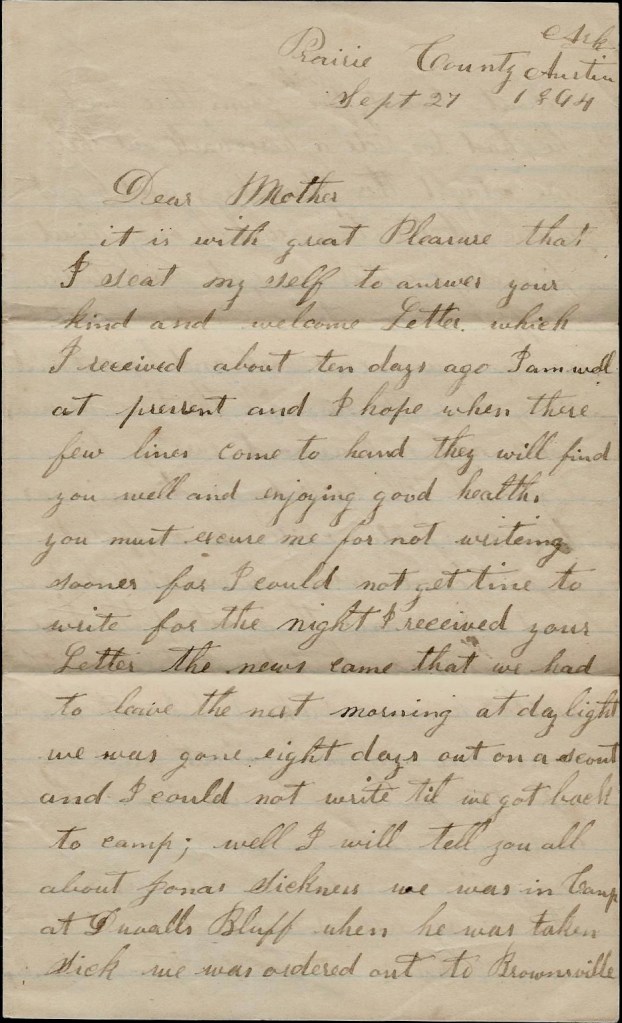 Ark
Prairie County Austin
Sept 27 1864
Dear Mother
it is with great Pleasure that
I seat my self to answer your
kind and welcome Letter. which
I received about ten days ago I am well
at present and I hope when these
few lines come to hand they will find
you well and enjoying good health.
you must excuse me for not writeing
sooner for I could not get time to
write for the night I received your
Letter the news came that we had
to leave the next morning at day light
we was gone eight days out on a scout
and I could not write til we got back
to camp; well I will tell you all
about Jonas Sickness we was in Camp
at Duvalls Bluff when he was taken
Sick we was ordered out to Brownsville